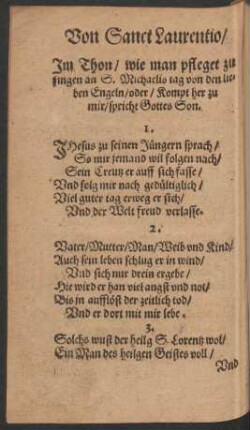 Von Sanct Laurentio/
Im Thon/ wie man pfleget zu
singen an S. Michaelis tag von den lie-
ben Engeln/oder/ Kompt her zu
mir/spricht Gottes Son.
1.
JHesus zu seinen Jüngern sprach/
So mir jemand wil folgen nach/
Sein Creutz er auff sich fasse/
Vnd folg mir nach gedültiglich/
Viel guter tag erweg er sich/
Vnd der Welt freud verlasse.
2.
Vater/Mutter/Man/Weib vnd Kind/
Auch sein leben schlug er in wind/
Vnd sich nur drein ergebe/
Hie wird er han viel angst vnd not/
Bis in aufflöst der zeitlich tod/
Vnd er dort mit mir lebe.
3.
Solchs wust der heilg S. Lorentz wol/
Ein Man des heilgen Geistes voll/
Vnd